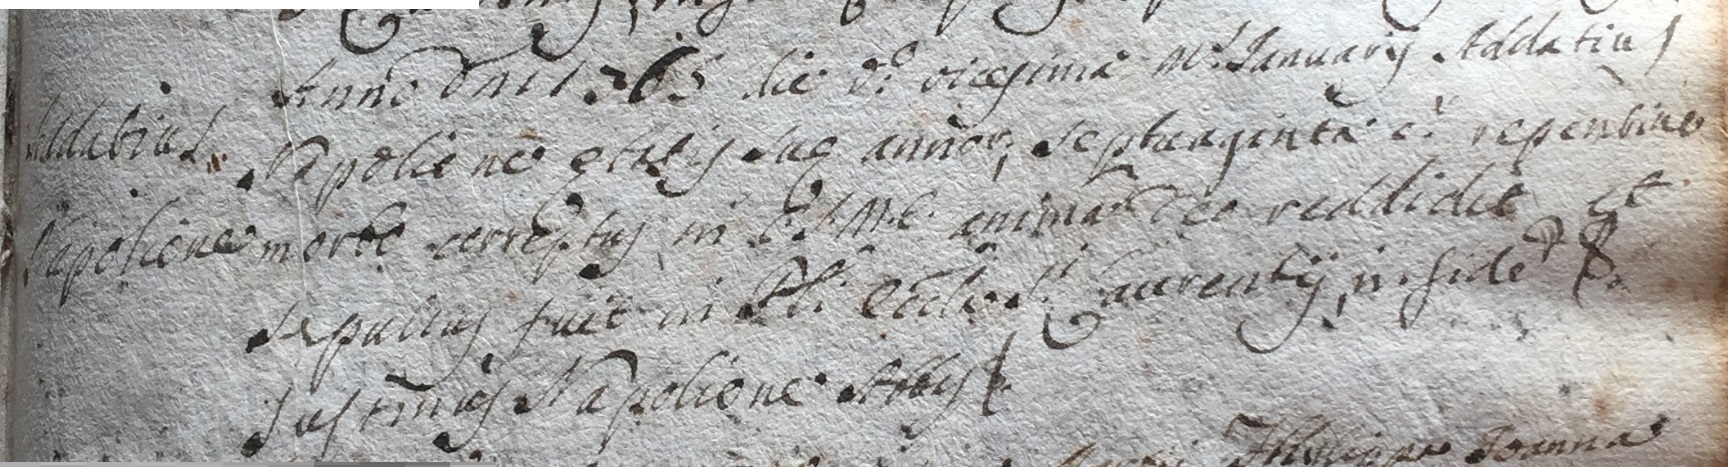 Anno Dni 1765 die v.o vicesima m.s Januarij Addatius
Addatius Napolione etatis sue annor, septuaginta c. repentino
Napolione morbo correptus in C.S.M.E. anima Deo reddidit et
sepultus fuit in Ecclia S.ti Laurentij, in fide
Justinus Napolione Abbas
Joanna